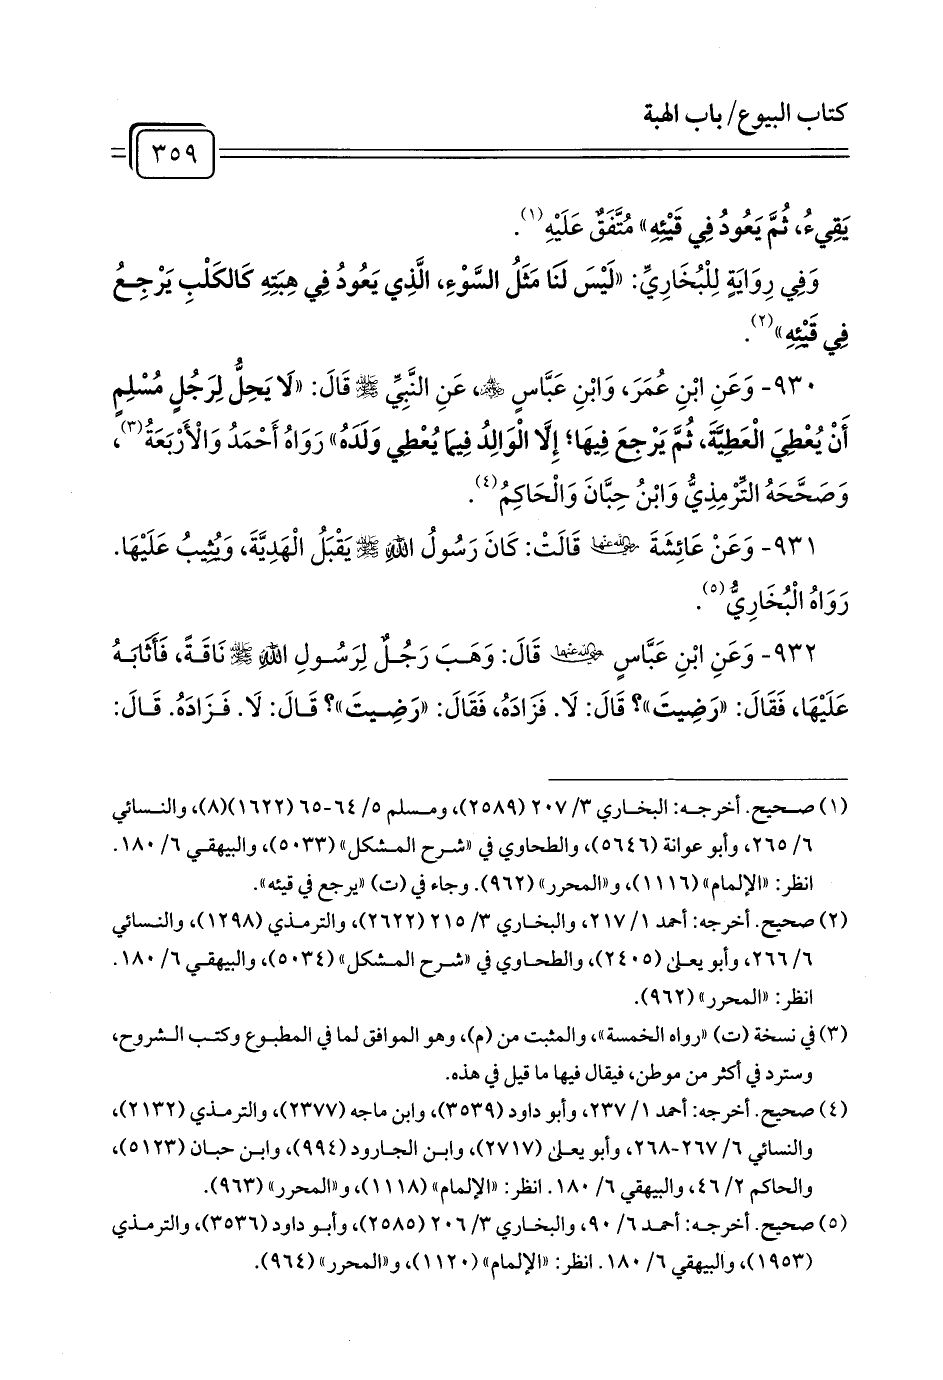 كتاب البيوع/ باب الهبة
٣٥٩
يَقِيءُ، ثُمَّ يَعُودُ فِي قَيْئِهِ» مُتَّفَقٌ عَلَيْهِ(١).
وَفِي رِوَايَةٍ لِلْبُخَارِيِّ: «لَيْسَ لَنَا مَثَلُ السَّوْءِ، الَّذِي يَعُودُ فِي هِبَتِهِ كَالكَلْبِ يَرْجِعُ
فِي قَيْئِهِ»(٢).
٩٣٠- وَعَنِ ابْنِ عُمَرَ، وَابْنِ عَبَّاسٍ ﵃، عَنِ النَّبِيِّ ﷺ قَالَ: «لَا يَحِلُّ لِرَجُلٍ مُسْلِمٍ
أَنْ يُعْطِيَ الْعَطِيَّةَ، ثُمَّ يَرْجِعَ فِيهَا؛ إِلَّا الْوَالِدُ فِيمَا يُعْطِي وَلَدَهُ» رَوَاهُ أَحْمَدُ وَالْأَرْبَعَةُ(٣)،
وَصَحَّحَهُ التِّرْمِذِيُّ وَابْنُ حِبَّانَ وَالْحَاكِمُ(٤).
٩٣١- وَعَنْ عَائِشَةَ رضي الله عنها قَالَتْ: كَانَ رَسُولُ اللهِ ﷺ يَقْبَلُ الْهَدِيَّةَ، وَيُثِيبُ عَلَيْهَا.
رَوَاهُ الْبُخَارِيُّ(٥).
٩٣٢- وَعَنِ ابْنِ عَبَّاسٍ رضي الله عنهما قَالَ: وَهَبَ رَجُلٌ لِرَسُولِ اللهِ ﷺ نَاقَةً، فَأَثَابَهُ
عَلَيْهَا، فَقَالَ: «رَضِيتَ»؟ قَالَ: لَا. فَزَادَهُ، فَقَالَ: «رَضِيتَ»؟ قَالَ: لَا. فَزَادَهُ. قَالَ:
(١) صحيح. أخرجه: البخاري ٣/ ٢٠٧ (٢٥٨٩)، ومسلم ٥/ ٦٤-٦٥ (١٦٢٢)(٨)، والنسائي
٦/ ٢٦٥، وأبو عوانة (٥٦٤٦)، والطحاوي في «شرح المشكل» (٥٠٣٣)، والبيهقي ٦/ ١٨٠.
انظر: «الإلمام» (١١١٦)، و«المحرر» (٩٦٢). وجاء في (ت) «يرجع في قيئه».
(٢) صحيح. أخرجه: أحمد ١/ ٢١٧، والبخاري ٣/ ٢١٥ (٢٦٢٢)، والترمذي (١٢٩٨)، والنسائي
٦/ ٢٦٦، وأبو يعلى (٢٤٠٥)، والطحاوي في «شرح المشكل» (٥٠٣٤)، والبيهقي ٦/ ١٨٠.
انظر: «المحرر» (٩٦٢).
(٣) في نسخة (ت) «رواه الخمسة»، والمثبت من (م)، وهو الموافق لما في المطبوع وكتب الشروح،
وسترد في أكثر من موطن، فيقال فيها ما قيل في هذه.
(٤) صحيح. أخرجه: أحمد ١/ ٢٣٧، وأبو داود (٣٥٣٩)، وابن ماجه (٢٣٧٧)، والترمذي (٢١٣٢)،
والنسائي ٦/ ٢٦٧-٢٦٨، وأبو يعلى (٢٧١٧)، وابن الجارود (٩٩٤)، وابن حبان (٥١٢٣)،
والحاكم ٢/ ٤٦، والبيهقي ٦/ ١٨٠. انظر: «الإلمام» (١١١٨)، و«المحرر» (٩٦٣).
(٥) صحيح. أخرجه: أحمد ٦/ ٩٠، والبخاري ٣/ ٢٠٦ (٢٥٨٥)، وأبو داود (٣٥٣٦)، والترمذي
(١٩٥٣)، والبيهقي ٦/ ١٨٠. انظر: «الإلمام» (١١٢٠)، و«المحرر» (٩٦٤).